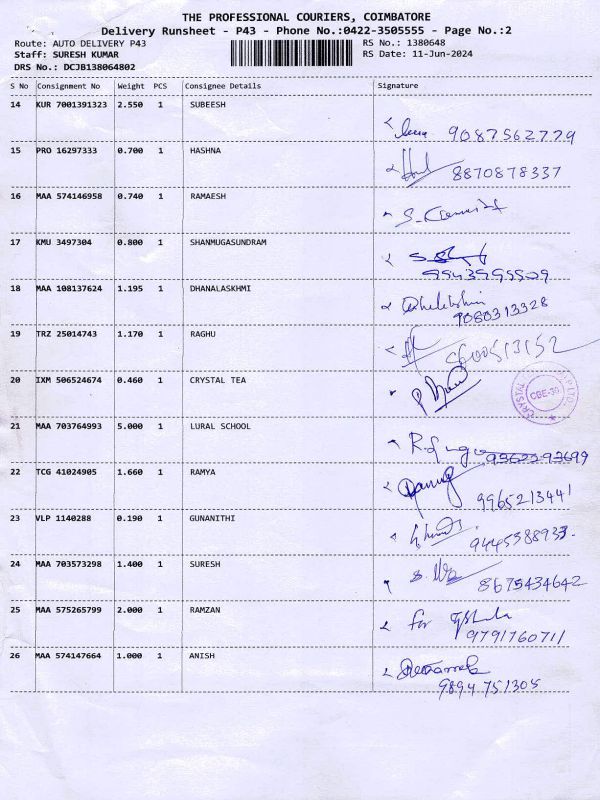 THE PROFESSIONAL COURIERS, COIMBATORE
Delivery Runsheet - P43 - Phone No.:0422-3505555 - Page No.:2
Route: AUTO DELIVERY P43 RS No.: 1380648
Staff: SURESH KUMAR RS Date: 11-Jun-2024
DRS No.: DCJB138064802
S No Consignment No Weight PCS Consignee Details Signature
14 KUR 7001391323 2.550 1 SUBEESH
9087562779
15 PRO 16297333 0.700 1 HASHNA
8870878337
16 MAA 574146958 0.740 1 RAMAESH
17 KMU 3497304 0.800 1 SHANMUGASUNDRAM
18 MAA 108137624 1.195 1 DHANALASKHMI
9080313328
19 TRZ 25014743 1.170 1 RAGHU
20 IXM 506524674 0.460 1 CRYSTAL TEA
CRYSTAL CBE-30
21 MAA 703764993 5.000 1 LURAL SCHOOL
22 TCG 41024905 1.660 1 RAMYA
9965213441
23 VLP 1140288 0.190 1 GUNANITHI
9445388933.
24 MAA 703573298 1.400 1 SURESH
8675434642
25 MAA 575265799 2.000 1 RAMZAN
for
9791760711
26 MAA 574147664 1.000 1 ANISH
9894751305